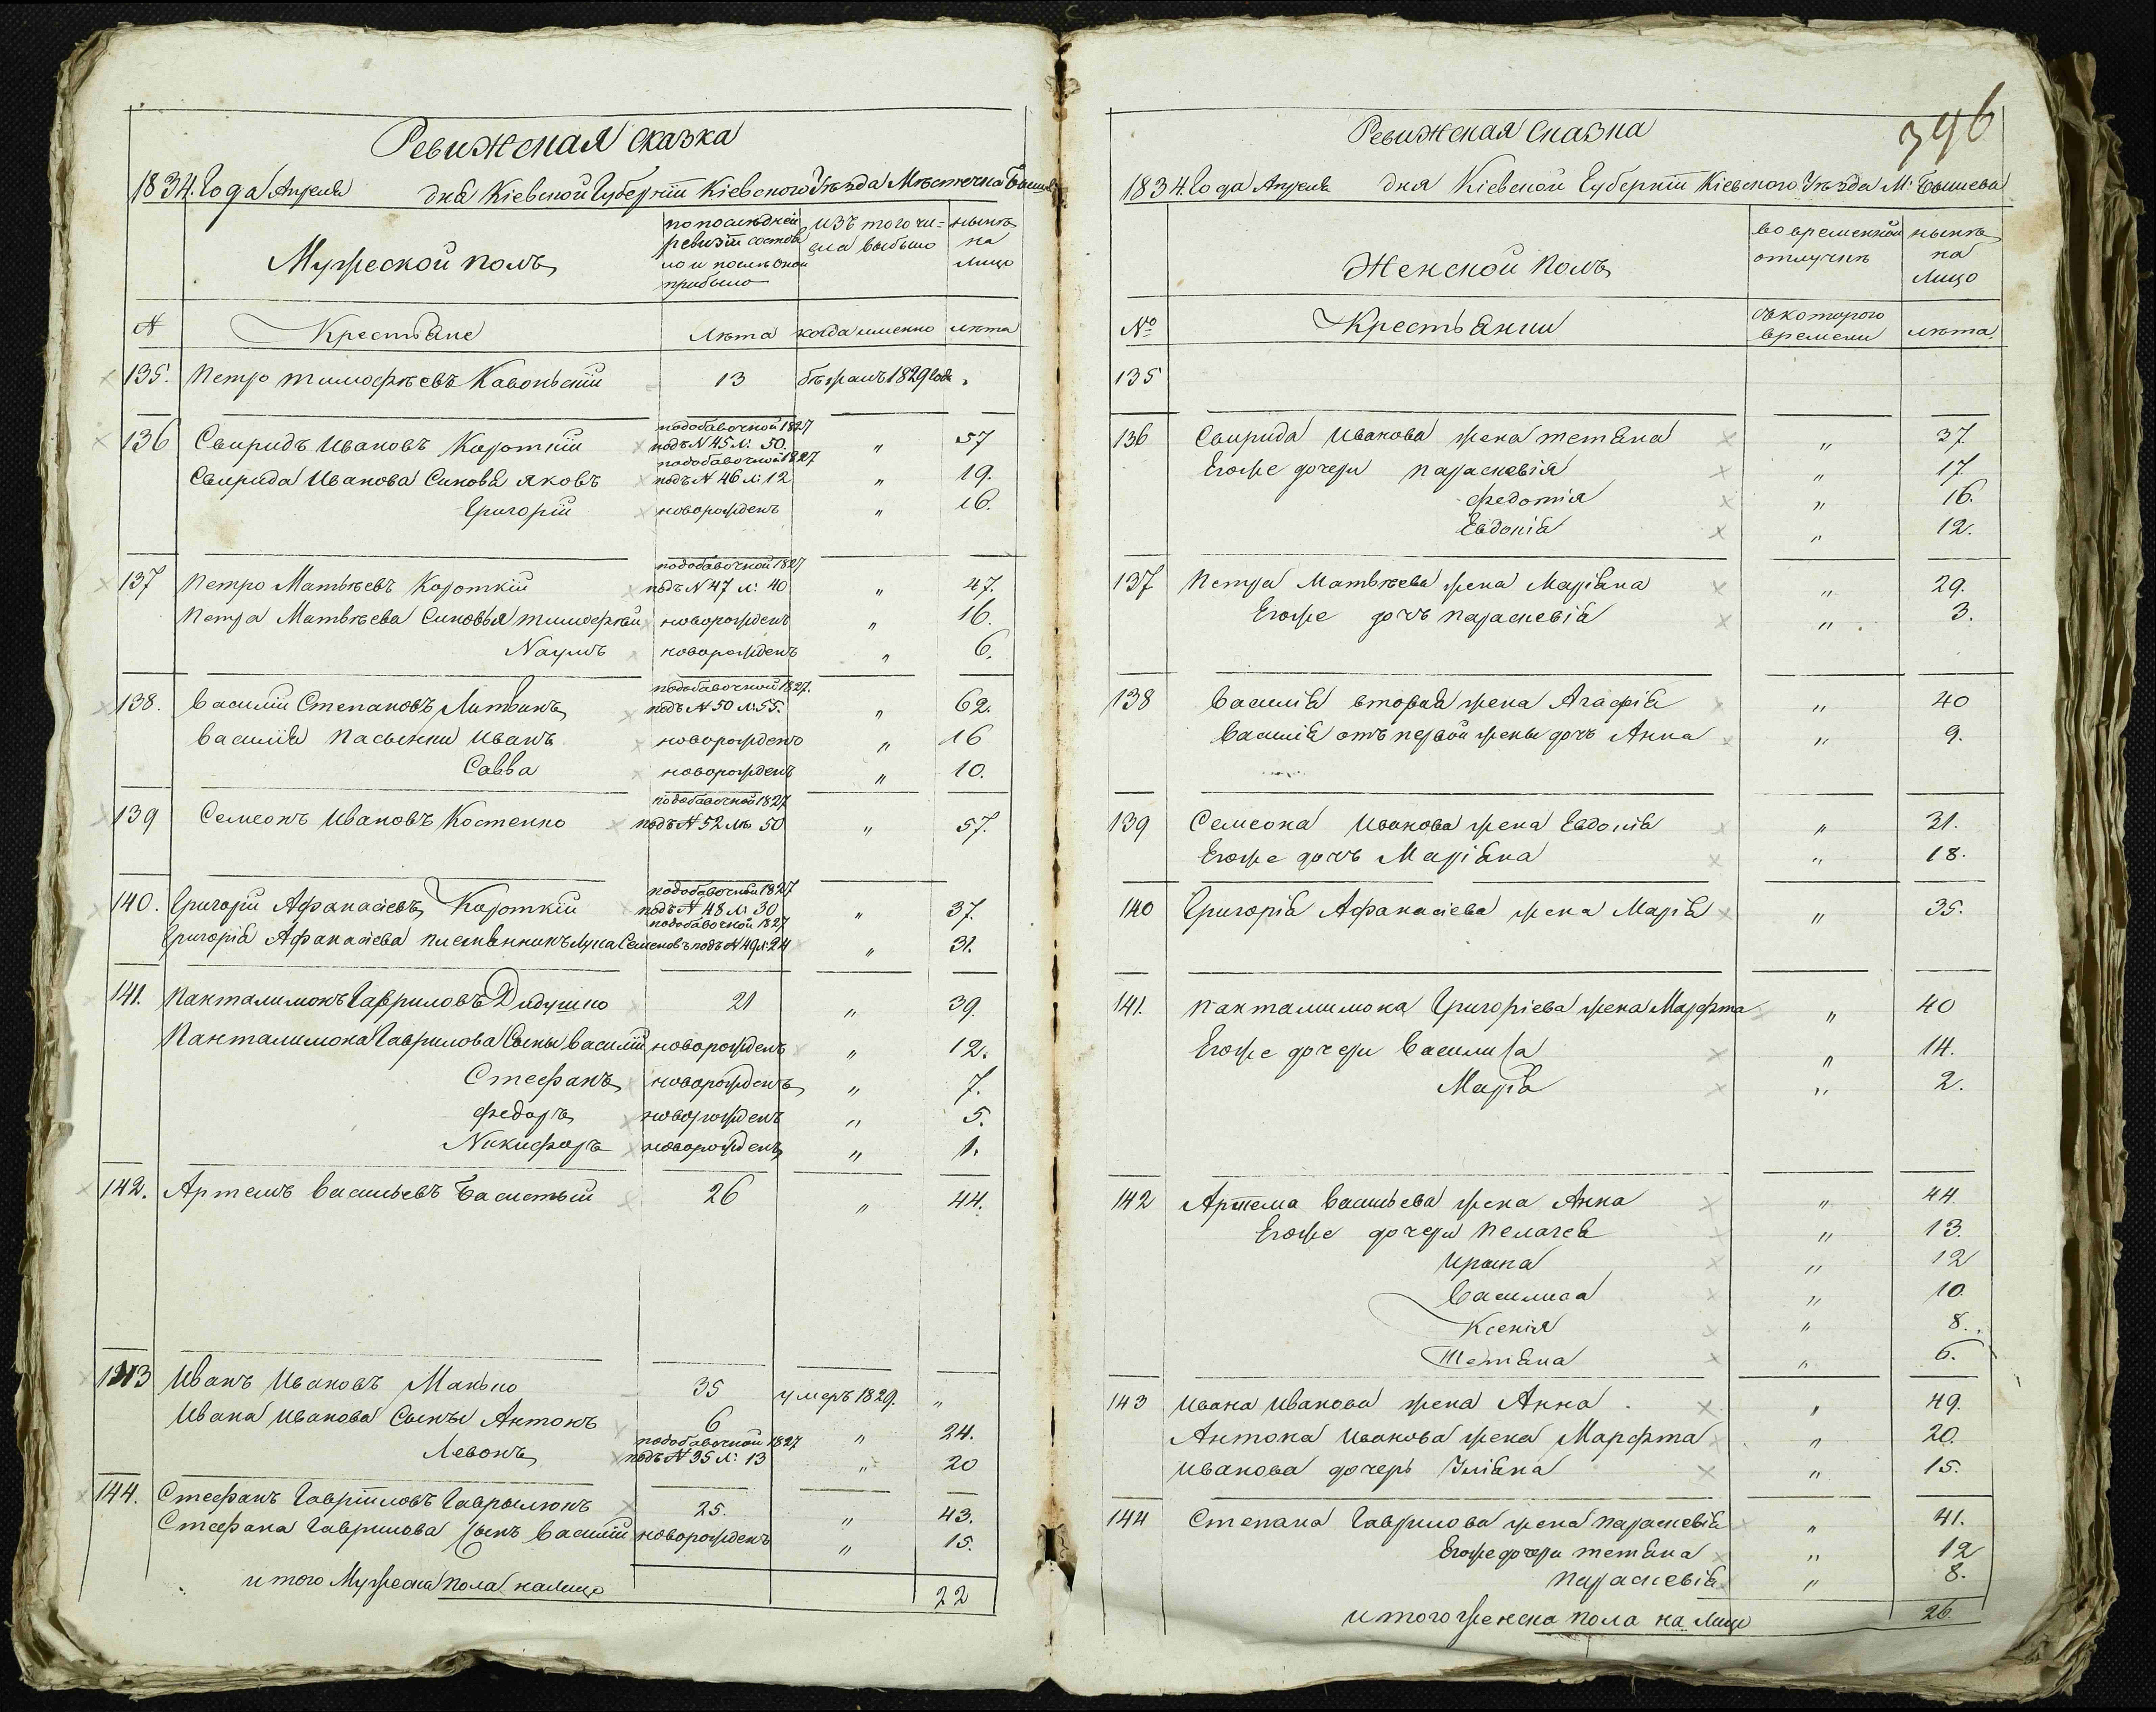 Ревижская сказка
1834. Года Апреля дня Кіевской Губерніи Кіевского Уѣзда Мѣстечка Бышева
Мужеской полъ
по последней ревизіи состояло и послѣ оной прибыло
изъ того числа выбыло
нынѣ на лицо
№ Крестьяне Лѣта когда именно лѣта
135. Петро Тимофѣевъ 13 бѣжалъ 1829 года "
136 Свиридъ Ивановъ Короткій по добавочной 1827 подъ N 45 л: 50. " 57
Свирида Иванова Синовья Яковъ по добавочной 1827 подъ N 46 л: 12 " 19.
Григорій новорожденъ " 16.
137 Петро Матвѣевъ Короткій по добавочной 1827 подъ N 47 л: 40 " 47.
Петра Матвѣева Синовья Тимофѣй новорожденъ " 16.
Наумъ новорожденъ " 6.
138. Василій Степановъ Литвинъ по добавочной 1827. подъ N 50 л: 55. " 62.
Василія пасынки Иванъ новорожденъ " 16
Савва новорожденъ " 10.
139 Семеонъ Ивановъ Костенко по добавочной 1827 подъ N 52 лѣ 50 " 57.
140. Григорій Афанасіевъ Короткій по добавочной 1827 подъ N 48 л: 30 " 37.
Григорія Афанасіева племянникъ Лука Семеновъ по добавочной 1827 подъ N 49 л: 24 " 31.
141. Пантали­монъ Гавриловъ Дидушко 21 " 39.
Панталимона Гаврилова Сыны Василій новорожденъ " 12.
Стефанъ новорожденъ " 7.
Федоръ новорожденъ " 5.
Никифоръ новорожденъ " 1.
142. Артемъ Васильевъ Басистый 26 " 44.
143 Иванъ Ивановъ Манько 35 умеръ 1829. "
Ивана Иванова Сыны Антонъ 6 " 24.
Левонъ по добавочной 1827 подъ N 35 л: 13 " 20
144. Стефанъ Гавріиловъ Гаврилюкъ 25. " 43.
Стефана Гаврилова сынъ Василій новорожденъ " 15.
итого Мужеска пола налицо 22
396
Ревижская Сказка
1834. Года Апреля дня Кіевской Губерніи Кіевского Уѣзда М: Бышева
Женской Полъ
во временной отлучкѣ
нынѣ на лицо
№ Крестьянки съ которого времени лѣта.
135
136 Свирида Иванова жена Тетяна " 37.
Егоже дочери Параскевія " 17.
Федотія " 16.
Евдокія " 12.
137 Петра Матвѣева жена Маріяна " 29.
Егоже дочь Параскевія " 3.
138 Василія вторая жена Агафія " 40
Василія отъ первой жены дочь Анна " 9.
139 Семеона Иванова жена Евдокія " 31.
Егоже дочь Маріяна " 18.
140 Григорія Афанасіева жена Марія " 35.
141. Панталимона Григоріева жена Марфта " 40
Егоже дочери Василиса " 14.
Марія " 2.
142 Артема Васильева жена Анна " 44.
Егоже дочери Пелагея " 13.
Ирина " 12
Василиса " 10.
Ксенія " 8.
Тетяна " 6.
143 Ивана Иванова жена Анна " 49.
Антона Иванова жена Марфта " 20.
Иванова дочерь Уліяна " 15.
144 Степана Гаврилова жена Параскевія " 41.
Егоже дочери Тетяна " 12
Параскевія " 8.
итого женска пола на лицо 26.